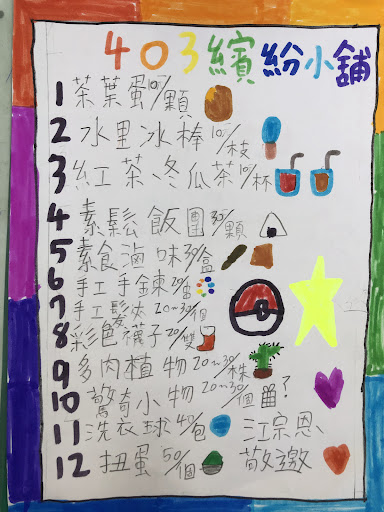 403繽紛小舖
1 茶葉蛋10/顆
2 水里冰棒10/枝
3 紅茶、冬瓜茶10/杯
4 素鬆飯團30/顆
5 素食滷味30/盒
6 手工手鍊20/
7 手工髮夾20~30/個
8 彩色襪子20/雙
9 多肉植物20~30/株
10 驚奇小物20~30/個 ?
11 洗衣球40/包
12 扭蛋50/個
江宗恩、
敬邀